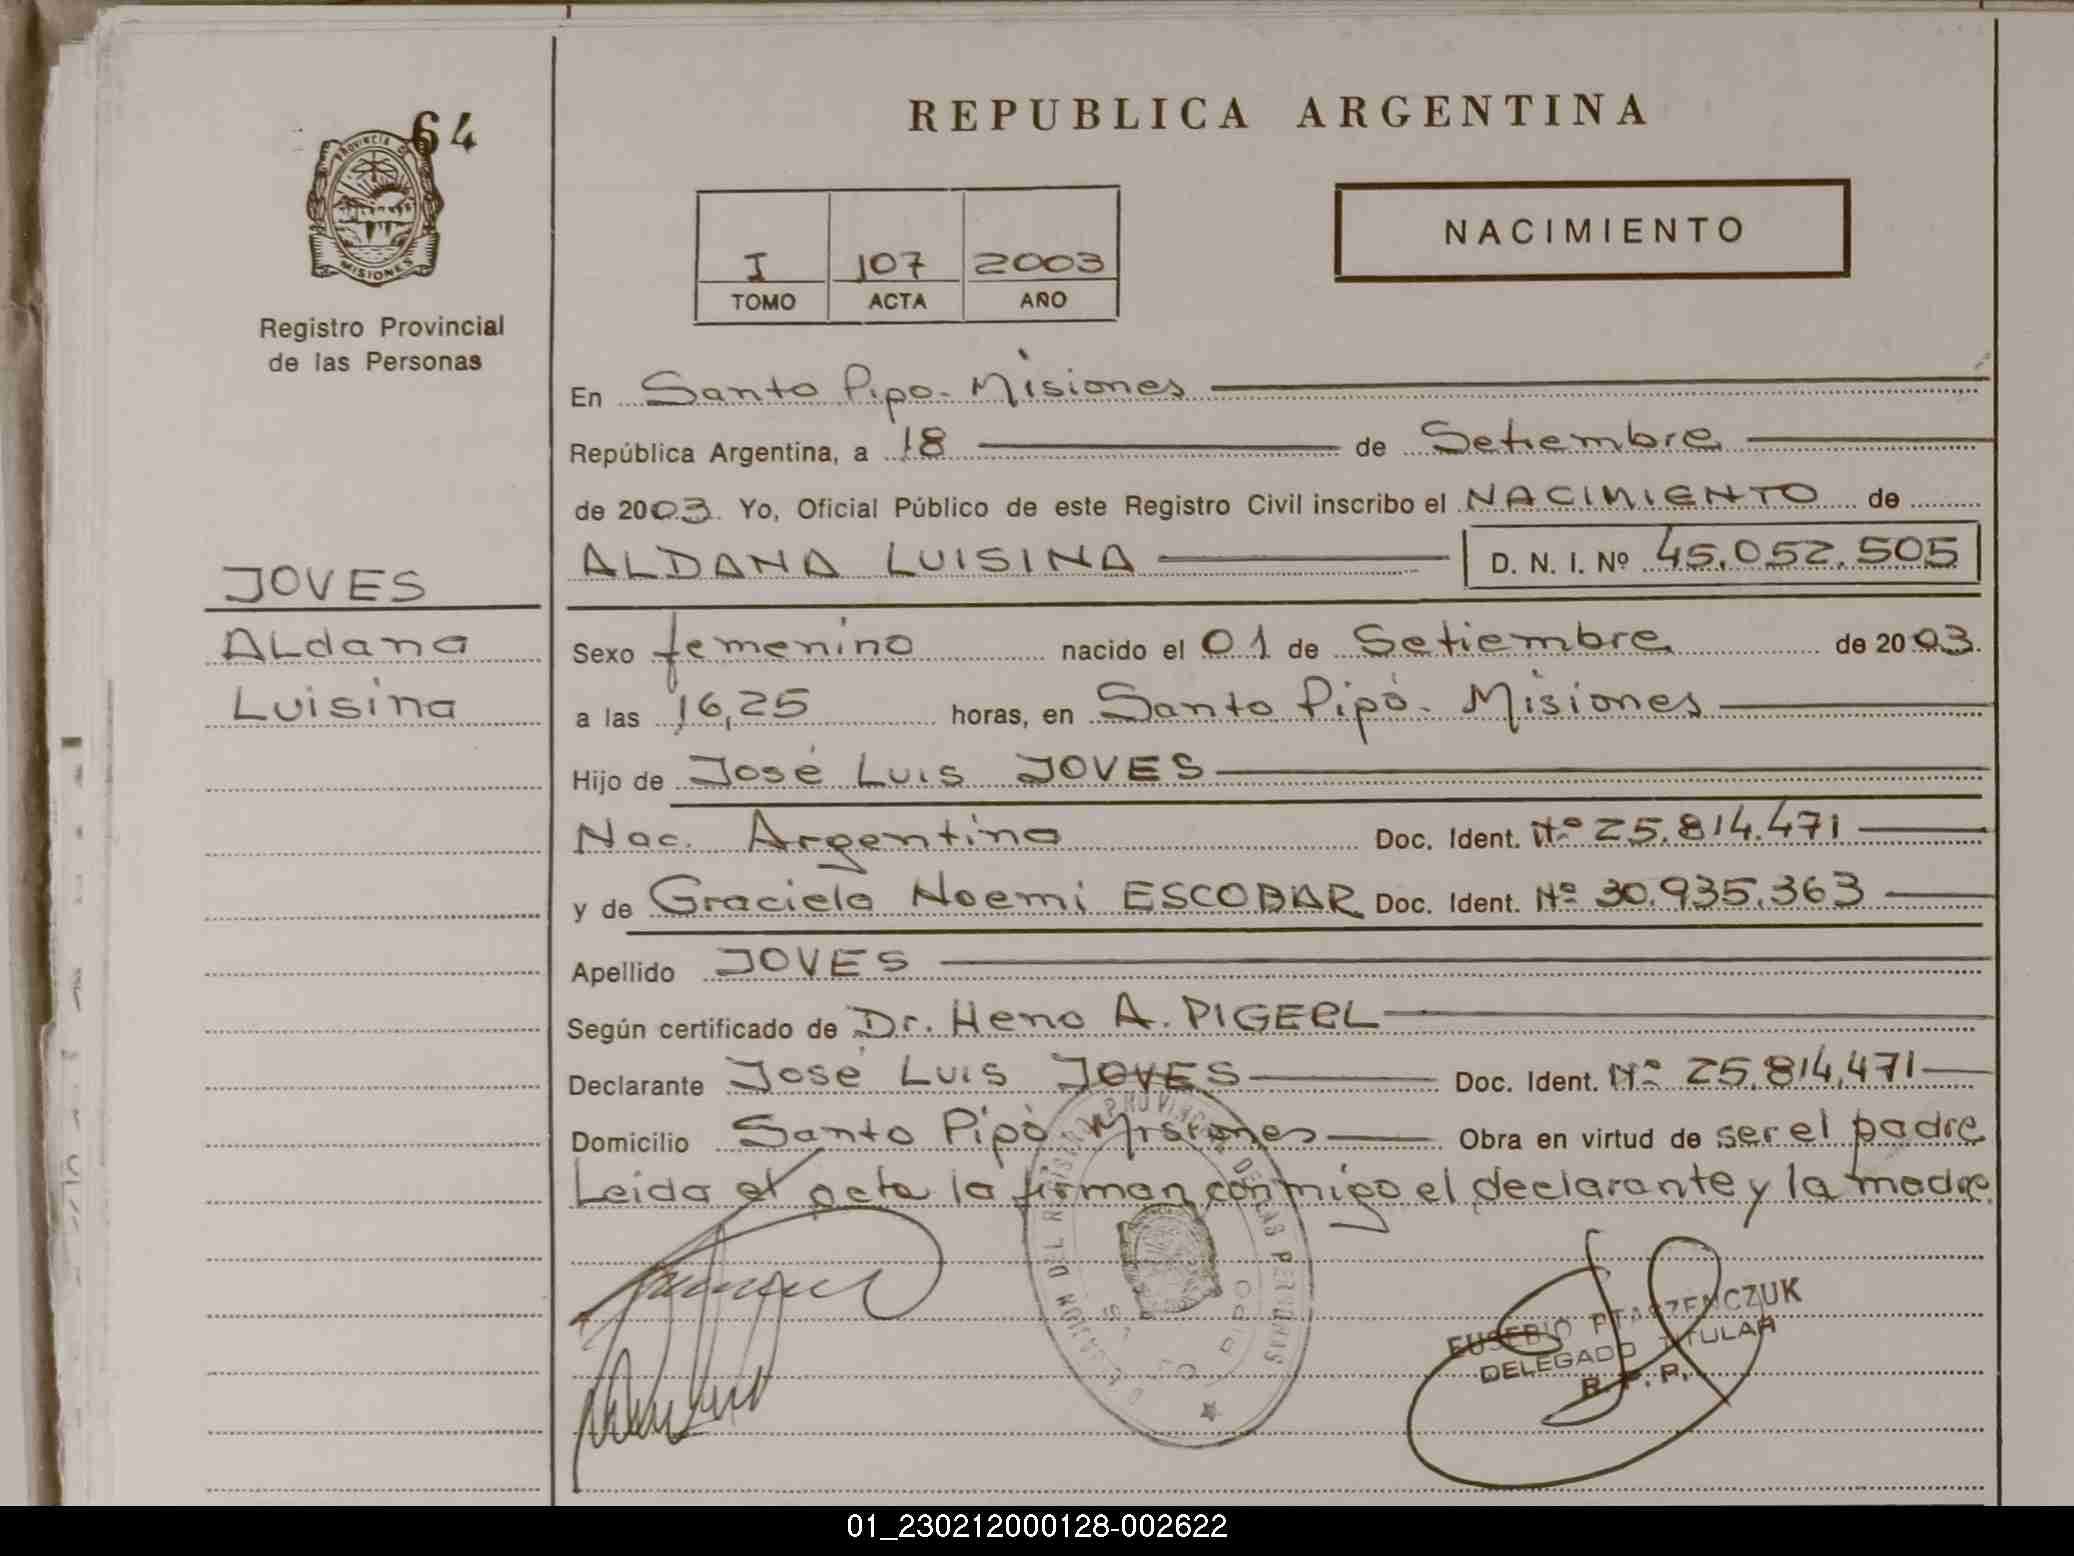 64
PROVINCIA DE
MISIONES
Registro Provincial
de las Personas
REPUBLICA ARGENTINA
I 107 2003
TOMO ACTA AÑO
NACIMIENTO
En Santo Pipo. Misiones
República Argentina, a 18 de Setiembre
de 2003. Yo, Oficial Público de este Registro Civil inscribo el NACIMIENTO de
ALDANA LUISINA D. N. I. Nº 45.052.505
JOVES
ALdana
Luisina
Sexo femenino nacido el 01 de Setiembre de 2003.
a las 16,25 horas, en Santo Pipó. Misiones
Hijo de José Luis JOVES
Nac. Argentina Doc. Ident. Nº 25.814.471
y de Graciela Noemi ESCOBAR Doc. Ident. Nº 30.935.363
Apellido JOVES
Según certificado de Dr. Heno A.
Declarante José Luis JOVES Doc. Ident. Nº 25.814.471
Domicilio Santo Pipó Misiones Obra en virtud de ser el padre
Leida el acta la firman conmigo el declarante y la madre.
EUSEBIO PTASZENCZUK
DELEGADO TITULAR
R. P. P.
01_230212000128-002622